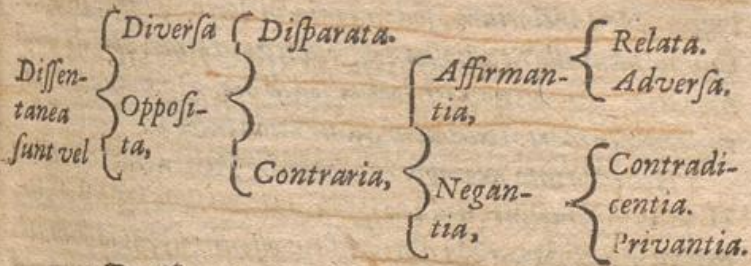 Dissen-
tanea
sunt vel
Diversa
Opposi-
ta,
Disparata.
Contraria,
Affirman-
tia,
Negan-
tia,
Relata.
Adversa.
Contradi-
centia.
Privantia.